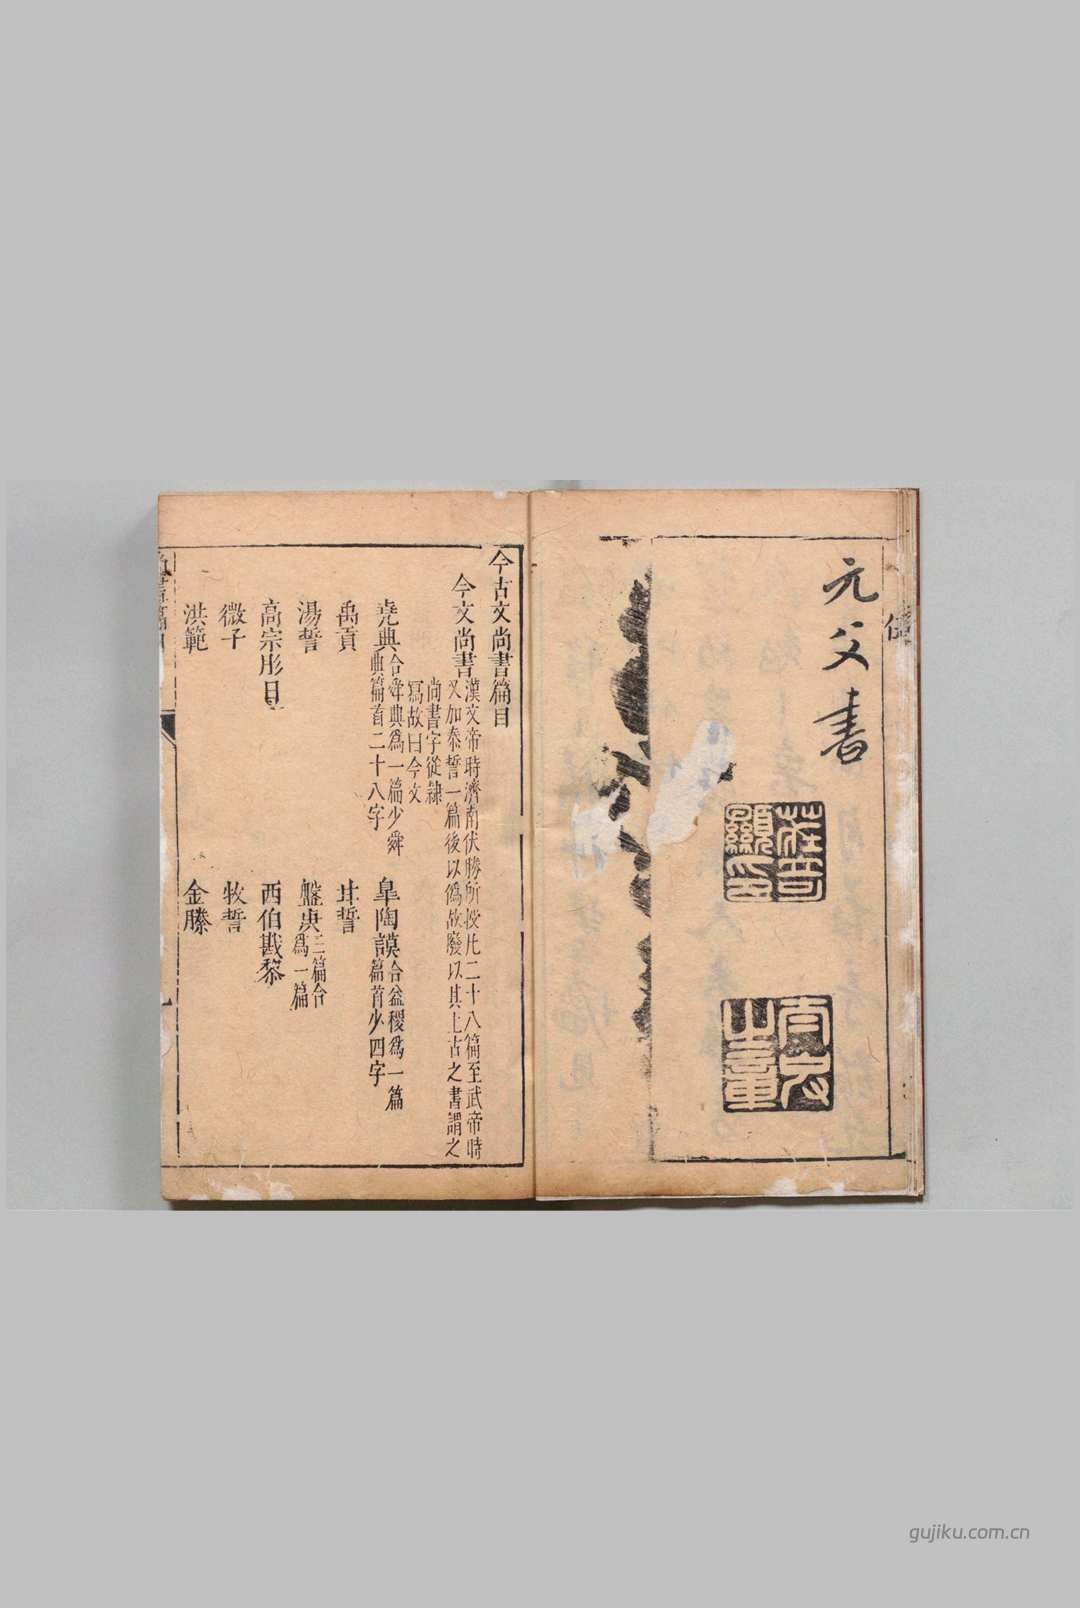 元父書
今古文尚書篇目
今文尚書
漢文帝時濟南伏勝所授凡二十八篇至武帝時
又加泰誓一篇後以僞故廢以其上古之書謂之
尚書字從隸
寫故曰今文
堯典
合舜典爲一篇少舜
典篇首二十八字
皐陶謨
合益稷爲一篇
篇首少四字
禹貢
甘誓
湯誓
盤庚
三篇合
爲一篇
高宗肜日
西伯戡黎
微子
牧誓
洪範
金縢
gujiku.com.cn